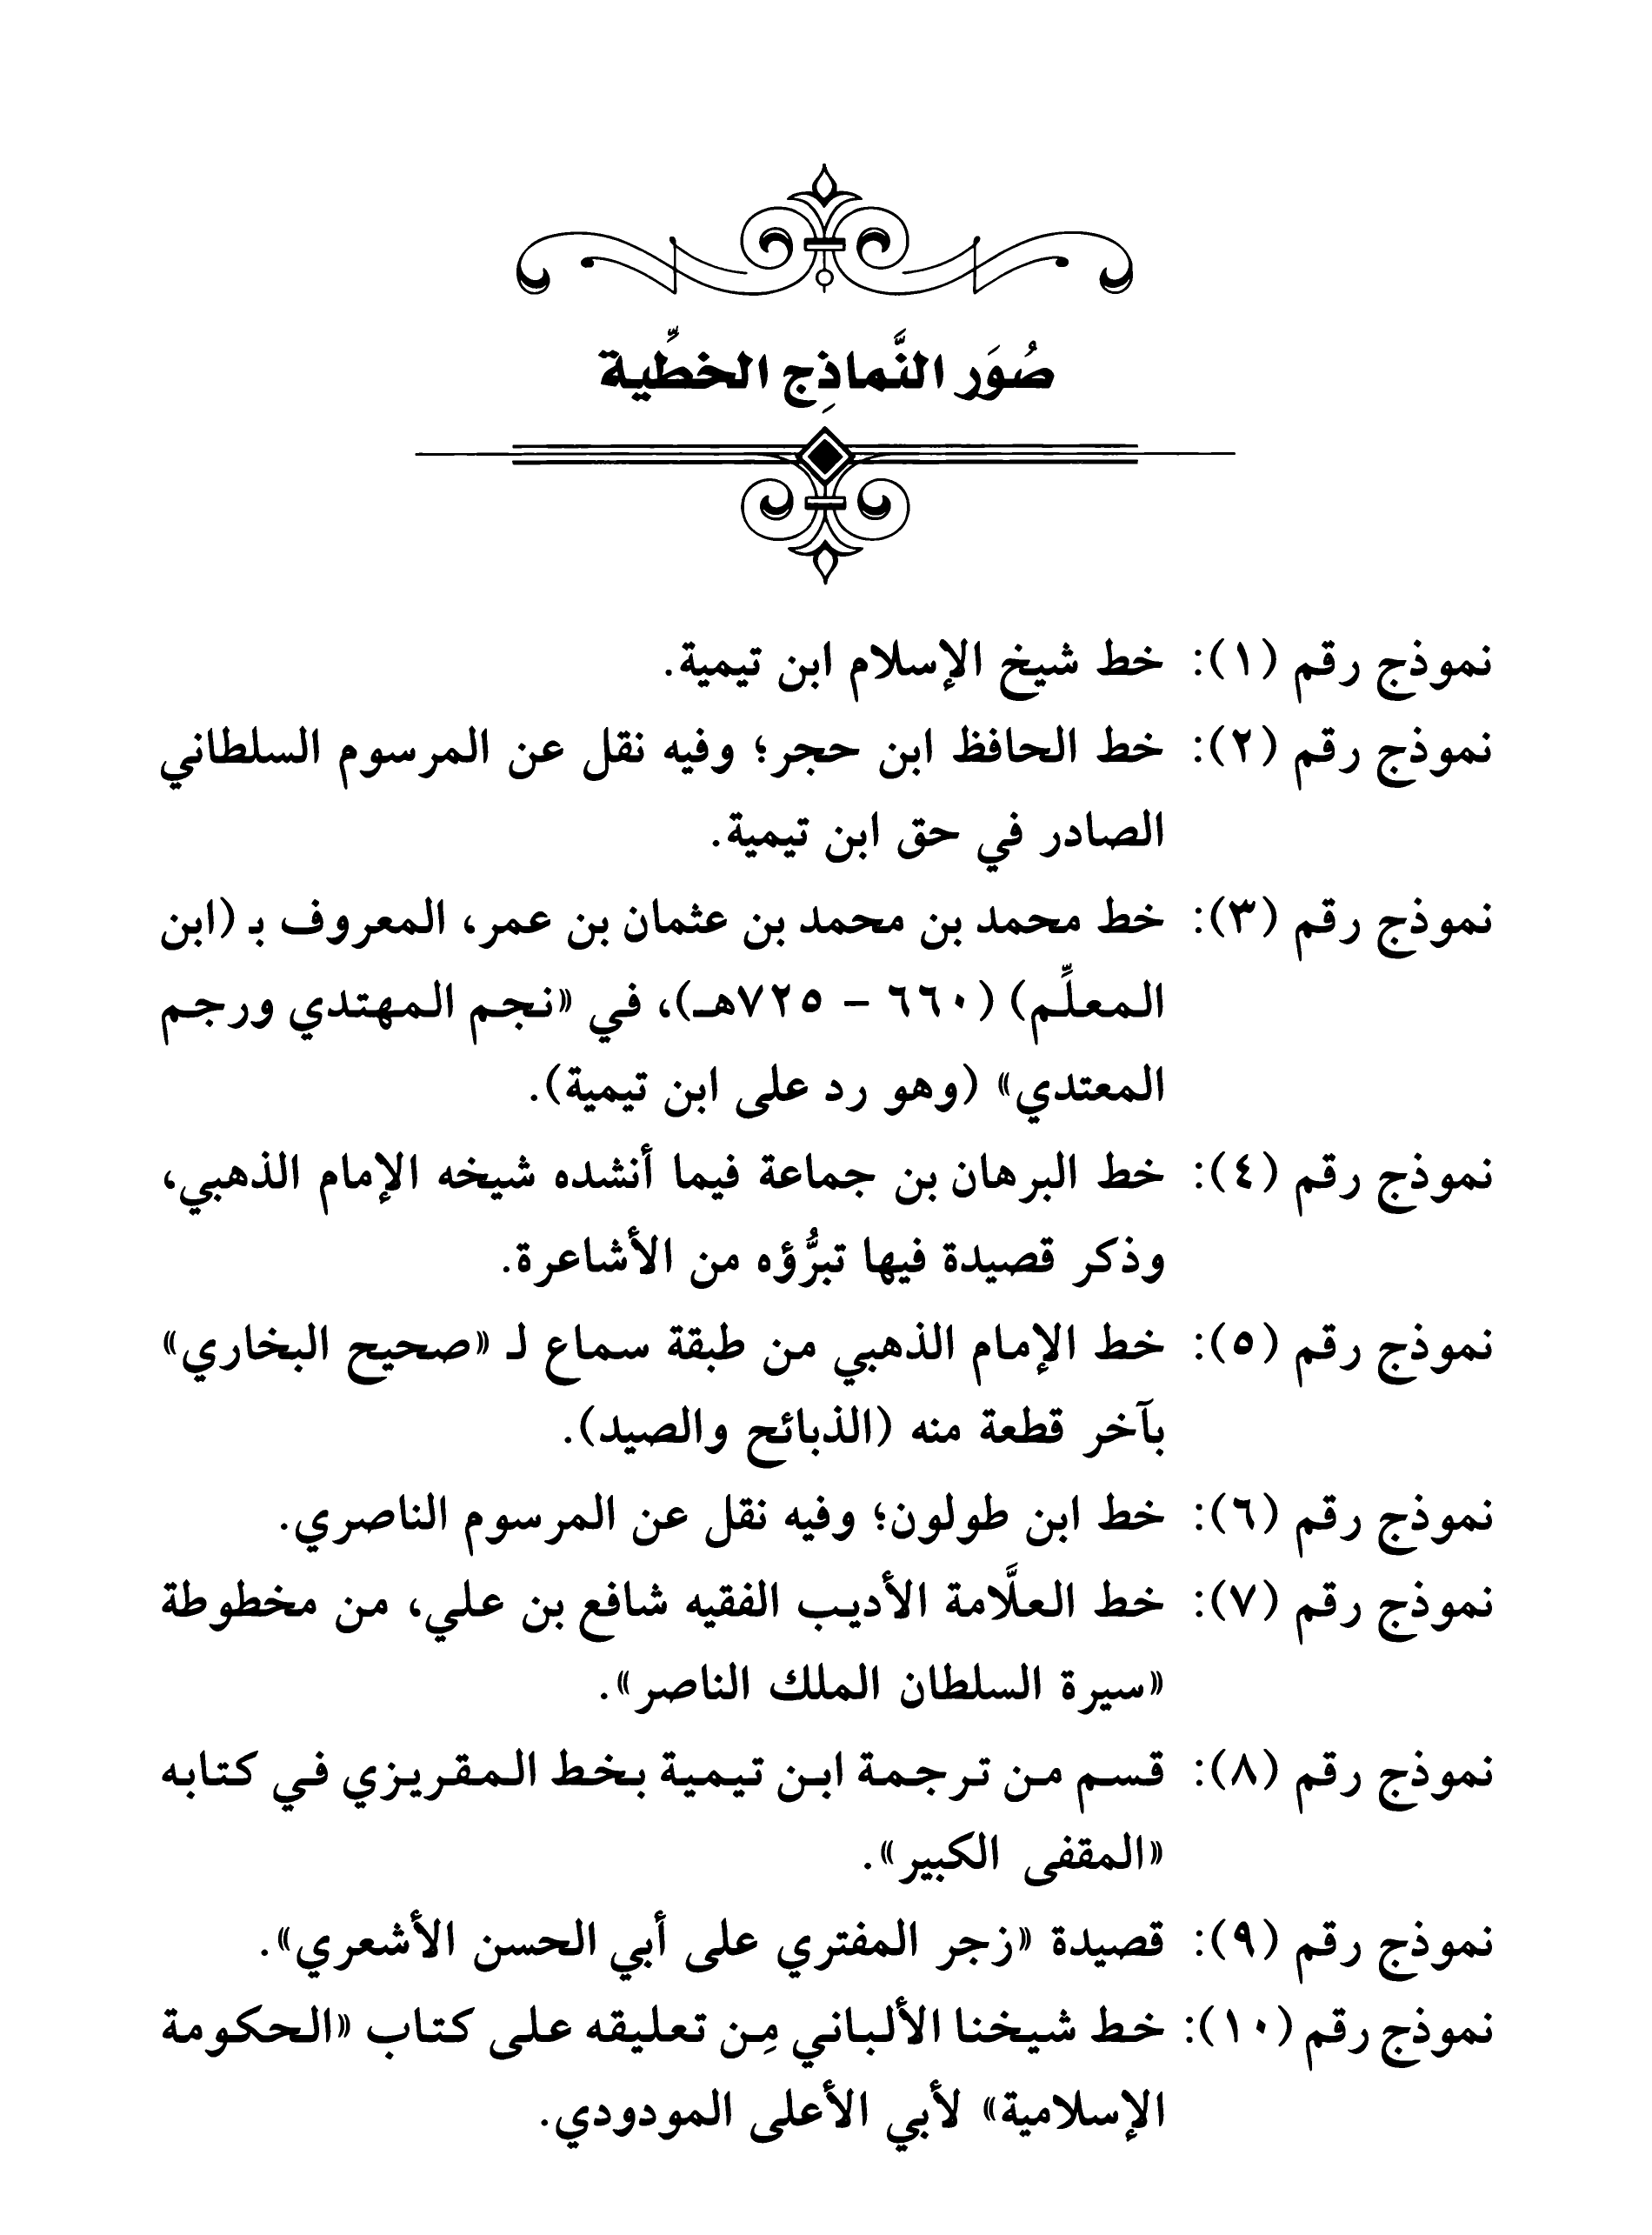 صُوَر النَّماذِج الخطِّية
نموذج رقم (١): خط شيخ الإسلام ابن تيمية.
نموذج رقم (٢): خط الحافظ ابن حجر؛ وفيه نقل عن المرسوم السلطاني
الصادر في حق ابن تيمية.
نموذج رقم (٣): خط محمد بن محمد بن عثمان بن عمر، المعروف بـ (ابن
المعلِّم) (٦٦٠ - ٧٢٥هـ)، في «نجم المهتدي ورجم
المعتدي» (وهو رد على ابن تيمية).
نموذج رقم (٤): خط البرهان بن جماعة فيما أنشده شيخه الإمام الذهبي،
وذكر قصيدة فيها تبرُّؤه من الأشاعرة.
نموذج رقم (٥): خط الإمام الذهبي من طبقة سماع لـ «صحيح البخاري»
بآخر قطعة منه (الذبائح والصيد).
نموذج رقم (٦): خط ابن طولون؛ وفيه نقل عن المرسوم الناصري.
نموذج رقم (٧): خط العلَّامة الأديب الفقيه شافع بن علي، من مخطوطة
«سيرة السلطان الملك الناصر».
نموذج رقم (٨): قسم من ترجمة ابن تيمية بخط المقريزي في كتابه
«المقفى الكبير».
نموذج رقم (٩): قصيدة «زجر المفتري على أبي الحسن الأشعري».
نموذج رقم (١٠): خط شيخنا الألباني مِن تعليقه على كتاب «الحكومة
الإسلامية» لأبي الأعلى المودودي.